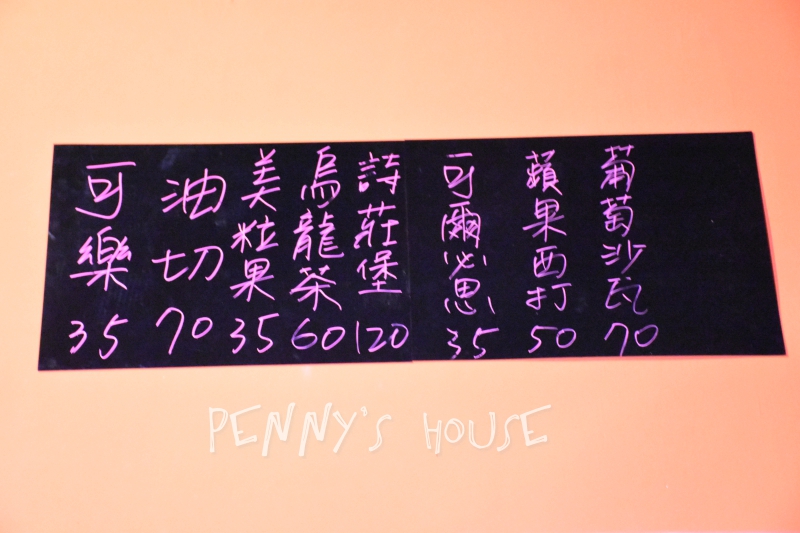 可樂 35
油切 70
美粒果 35
烏龍茶 60
詩莊堡 120
可爾必思 35
蘋果西打 50
葡萄沙瓦 70
PENNY'S HOUSE